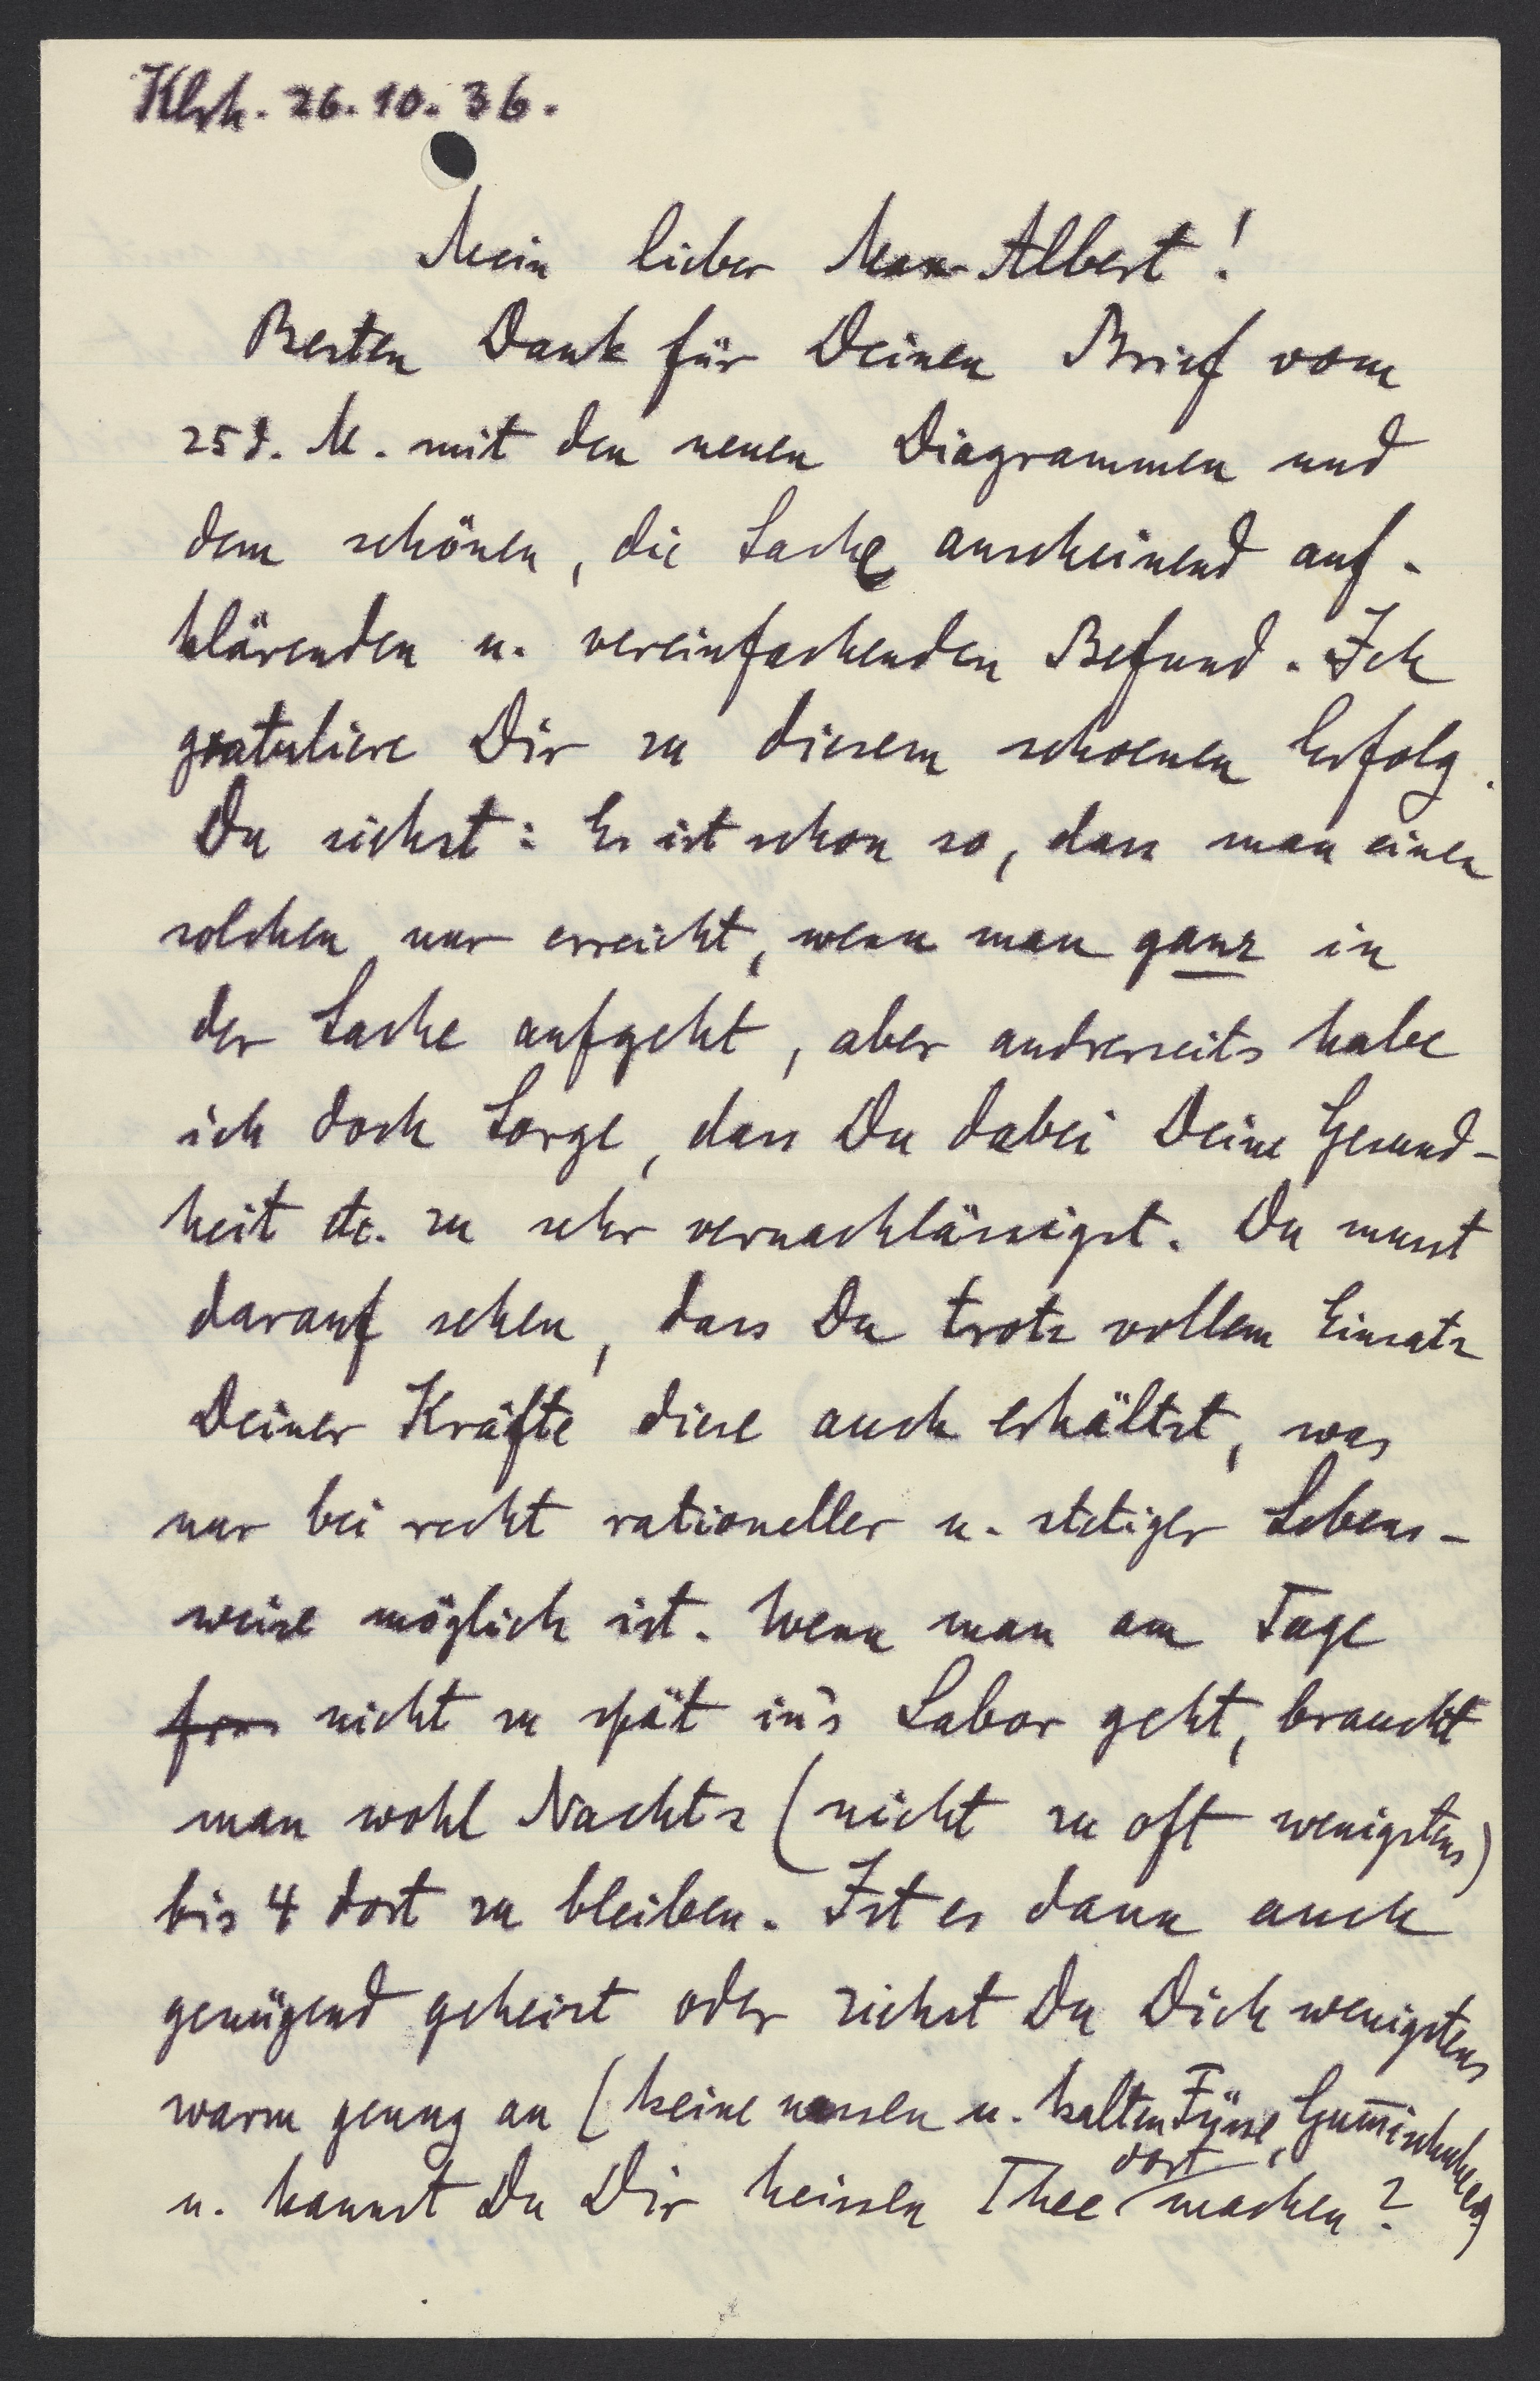 Klsh. 26.10.36.
Mein lieber Max Albert!
Besten Dank für Deinen Brief vom
25 d. M. mit den neuen Diagrammen und
dem schönen, die Sache anscheinend auf-
klärenden u. vereinfachenden Befund. Ich
gratuliere Dir zu diesem schoenen Erfolg.
Du siehst: Es ist schon so, dass man einen
solchen nur erreicht, wenn man ganz in
der Sache aufgeht, aber andrerseits habe
ich doch Sorge, dass Du dabei Deine Gesund-
heit etc. zu sehr vernachlässigst. Du musst
darauf sehen, dass Du trotz vollem Einsatz
Deiner Kräfte diese auch erhältst, was
nur bei recht rationeller u. stetiger Lebens-
weise möglich ist. Wenn man am Tage
nicht zu spät in's Labor geht, braucht
man wohl Nachts (nicht zu oft wenigstens)
bis 4 dort zu bleiben. Ist es dann auch
genügend geheizt oder ziehst Du Dich wenigstens
warm genug an (keine nassen u. kalten Füsse, Gum̄ischuhe eq)
u. kannst Du Dir heissen Thee dort machen?